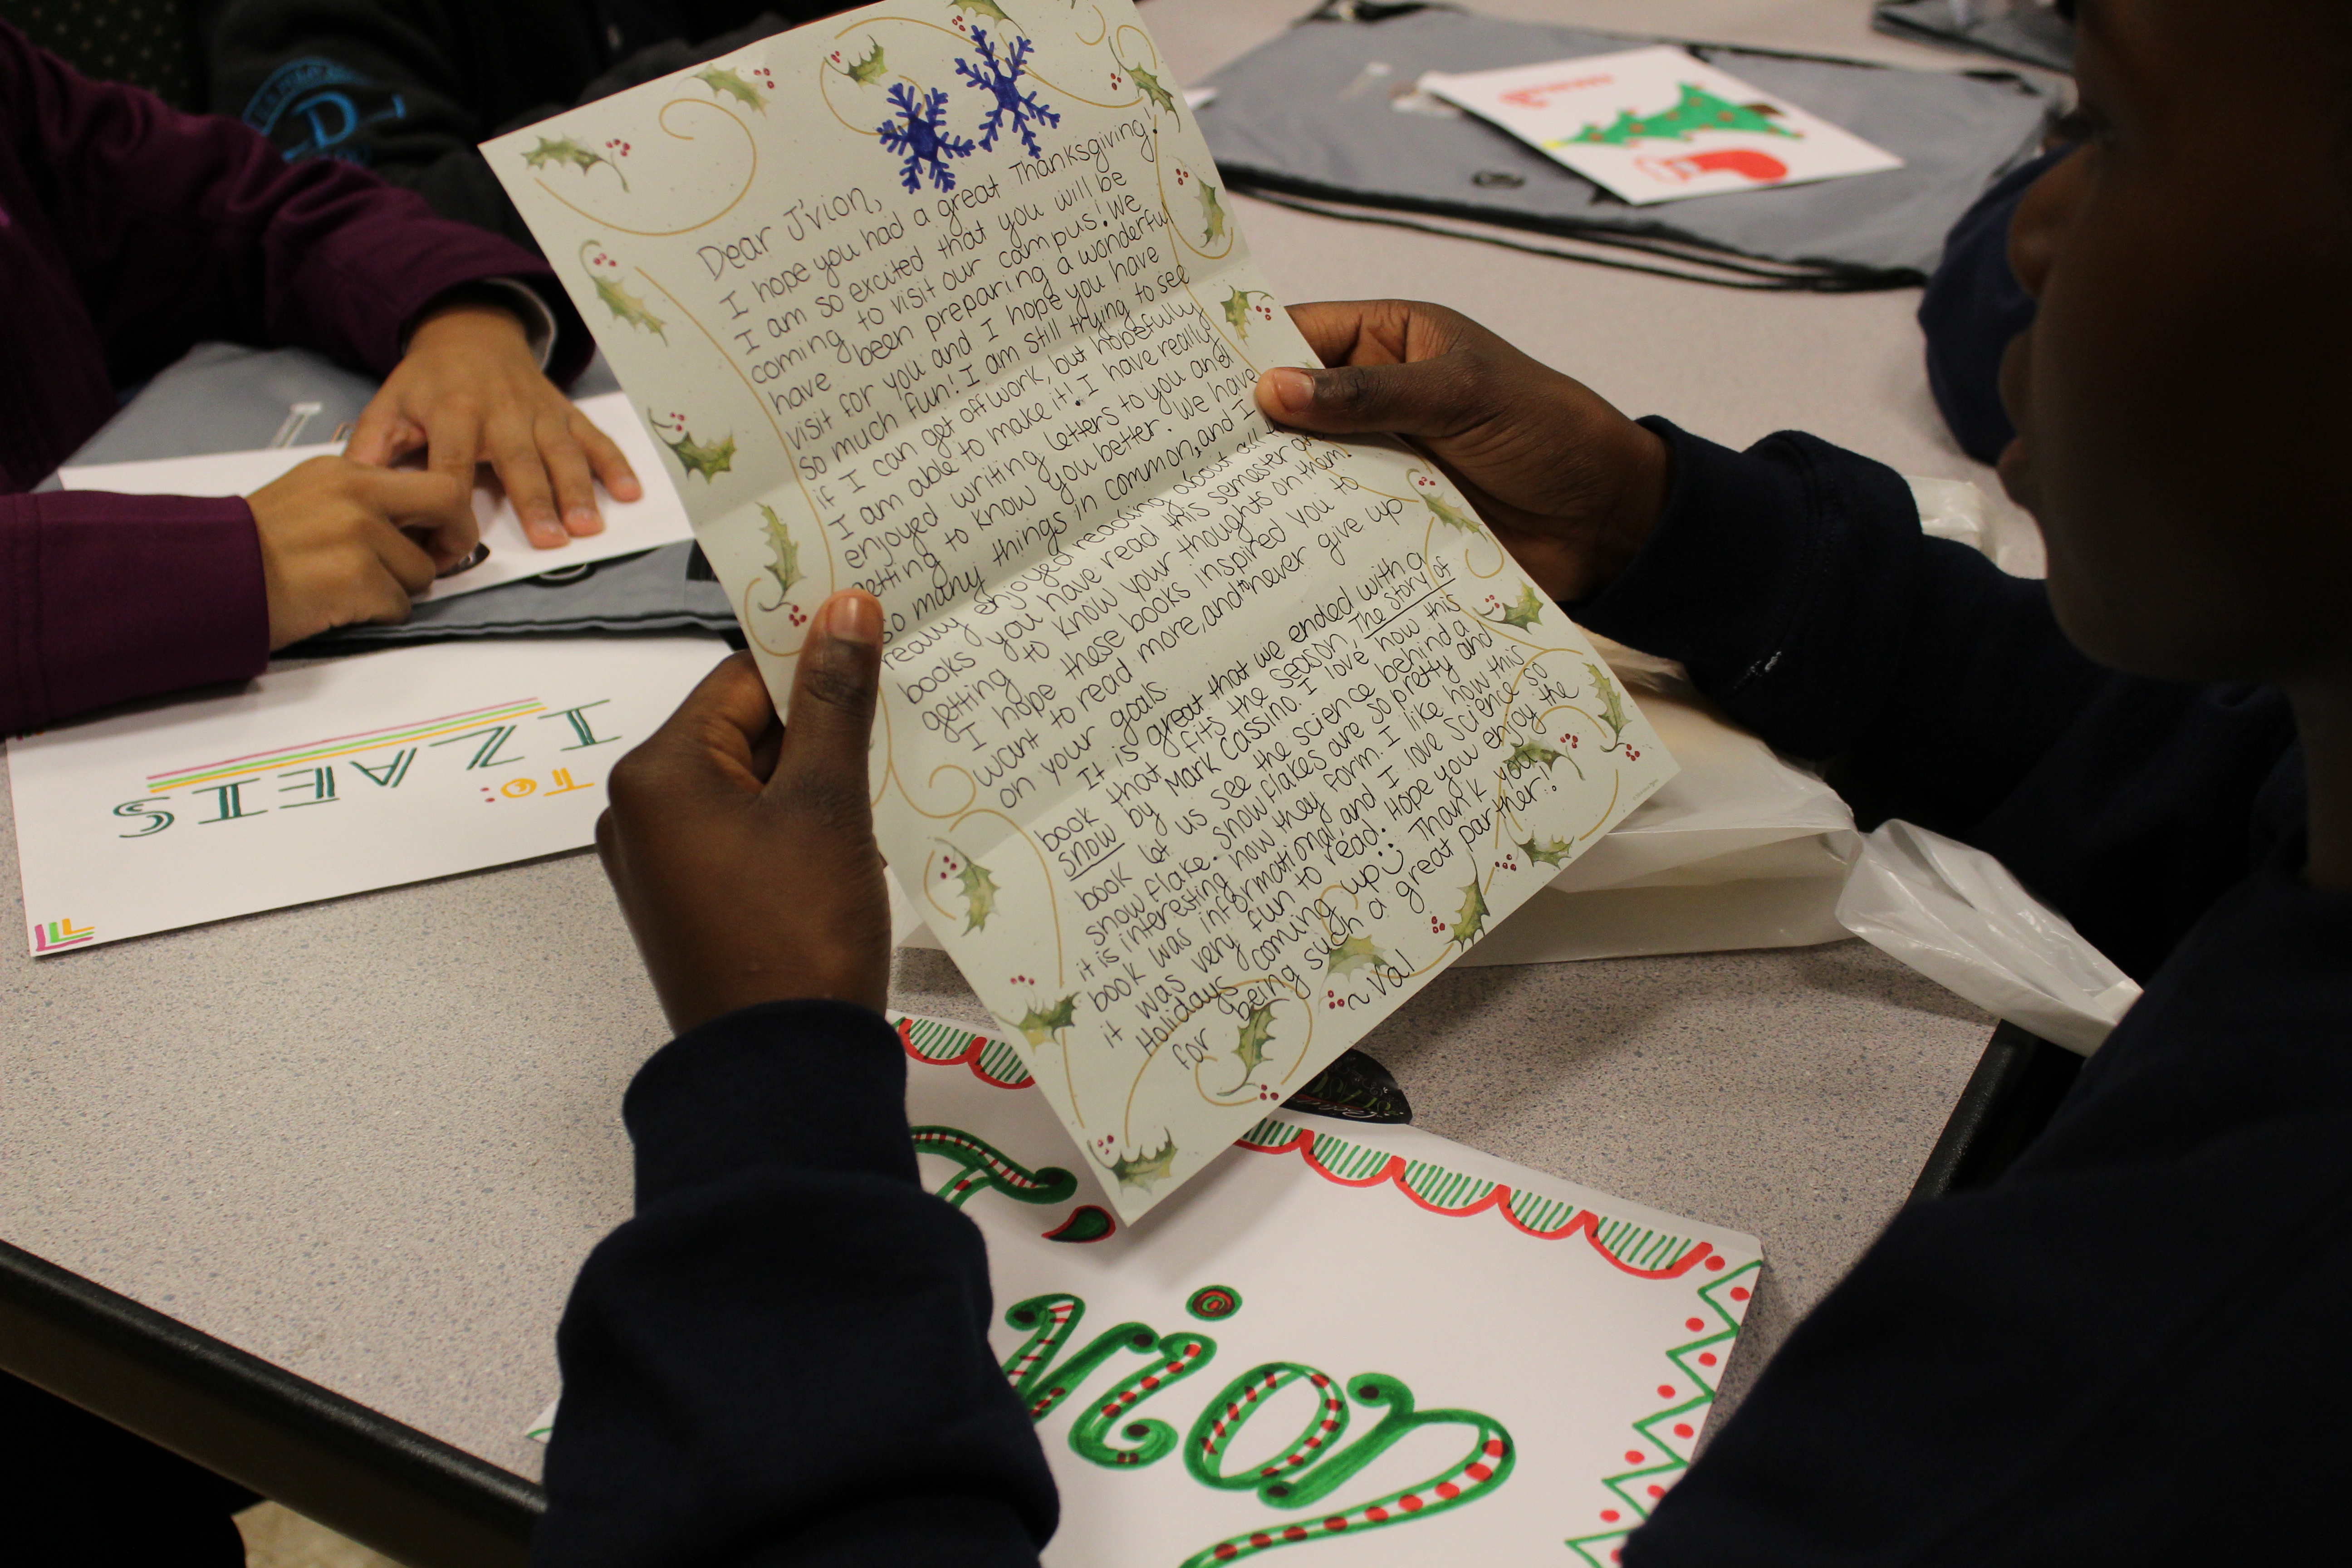 Dear J'vion,
I hope you had a great Thanksgiving!
I am so excited that you will be
coming to visit our campus! We
have been preparing a wonderful
visit for you and I hope you have
so much fun! I am still trying to see
if I can get off work, but hopefully
I am able to make it! I have really
enjoyed writing letters to you and
getting to know you better. We have
so many things in common, and I
really enjoyed reading about all
books you have read this semester
getting to know your thoughts on them!
I hope these books inspired you to
want to read more, and to never give up
on your goals.
It is great that we ended with a
book that fits the season, The Story of
Snow by Mark Cassino. I love how this
book let us see the science behind a
snowflake. Snowflakes are so pretty and
it is interesting how they form. I like how this
book was informational, and I love science so
it was very fun to read. Hope you enjoy the
Holidays coming up :) Thank you
for being such a great partner!
~ Val
To:
IZAEIS
J'vion
D